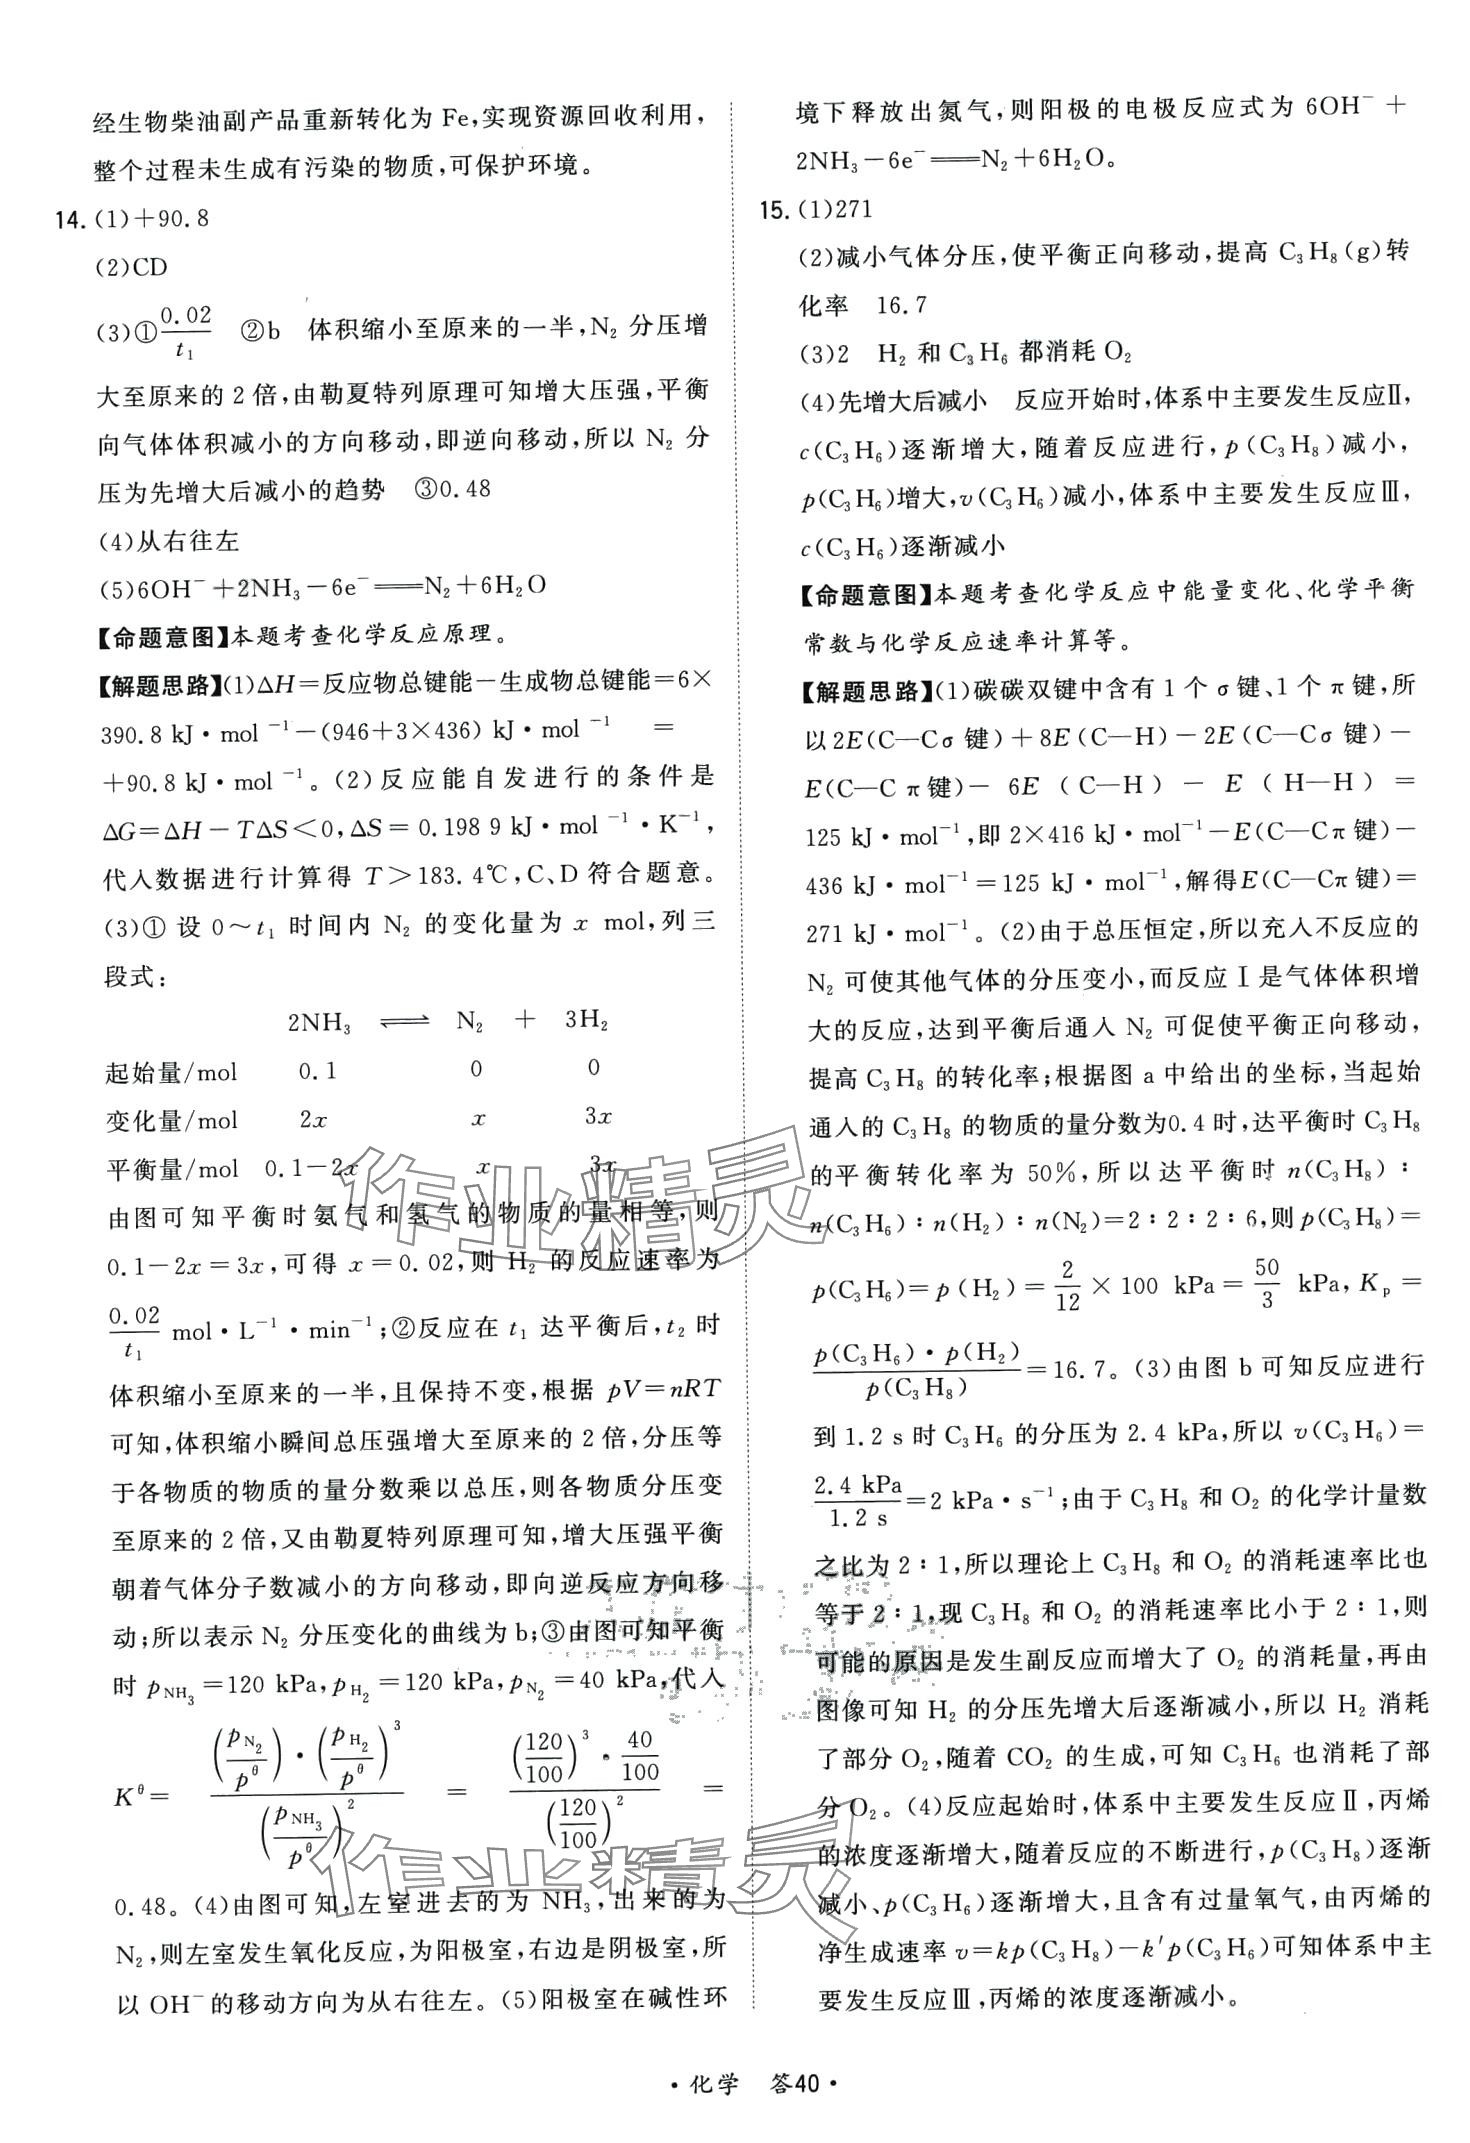 经生物柴油副产品重新转化为 Fe,实现资源回收利用,
整个过程未生成有污染的物质,可保护环境。
14.(1)+90.8
(2)CD
(3)①0.02/t₁ ②b 体积缩小至原来的一半,N₂ 分压增
大至原来的 2 倍,由勒夏特列原理可知增大压强,平衡
向气体体积减小的方向移动,即逆向移动,所以 N₂ 分
压为先增大后减小的趋势 ③0.48
(4)从右往左
(5)6OH⁻+2NH₃−6e⁻══N₂+6H₂O
【命题意图】本题考查化学反应原理。
【解题思路】(1)ΔH=反应物总键能−生成物总键能=6×
390.8 kJ·mol⁻¹−(946+3×436) kJ·mol⁻¹ =
+90.8 kJ·mol⁻¹。(2)反应能自发进行的条件是
ΔG=ΔH−TΔS<0,ΔS=0.198 9 kJ·mol⁻¹·K⁻¹,
代入数据进行计算得 T>183.4℃,C、D 符合题意。
(3)① 设 0~t₁ 时间内 N₂ 的变化量为 x mol,列三
段式:
2NH₃ ⇌ N₂ + 3H₂
起始量/mol 0.1 0 0
变化量/mol 2x x 3x
平衡量/mol 0.1−2x x 3x
由图可知平衡时氨气和氢气的物质的量相等,则
0.1−2x=3x,可得 x=0.02,则 H₂ 的反应速率为
0.02/t₁ mol·L⁻¹·min⁻¹;②反应在 t₁ 达平衡后,t₂ 时
体积缩小至原来的一半,且保持不变,根据 pV=nRT
可知,体积缩小瞬间总压强增大至原来的 2 倍,分压等
于各物质的物质的量分数乘以总压,则各物质分压变
至原来的 2 倍,又由勒夏特列原理可知,增大压强平衡
朝着气体分子数减小的方向移动,即向逆反应方向移
动;所以表示 N₂ 分压变化的曲线为 b;③由图可知平衡
时 p_NH₃=120 kPa,p_H₂=120 kPa,p_N₂=40 kPa,代入
K^θ=[(p_N₂/p^θ)·(p_H₂/p^θ)³]/(p_NH₃/p^θ)² = [(120/100)³·40/100]/(120/100)² =
0.48。(4)由图可知,左室进去的为 NH₃,出来的为
N₂,则左室发生氧化反应,为阳极室,右边是阴极室,所
以 OH⁻的移动方向为从右往左。(5)阳极室在碱性环
境下释放出氮气,则阳极的电极反应式为 6OH⁻+
2NH₃−6e⁻══N₂+6H₂O。
15.(1)271
(2)减小气体分压,使平衡正向移动,提高 C₃H₈(g)转
化率 16.7
(3)2 H₂ 和 C₃H₆ 都消耗 O₂
(4)先增大后减小 反应开始时,体系中主要发生反应Ⅱ,
c(C₃H₆)逐渐增大,随着反应进行,p(C₃H₈)减小,
p(C₃H₆)增大,v(C₃H₆)减小,体系中主要发生反应Ⅲ,
c(C₃H₆)逐渐减小
【命题意图】本题考查化学反应中能量变化、化学平衡
常数与化学反应速率计算等。
【解题思路】(1)碳碳双键中含有 1 个 σ键、1 个 π键,所
以 2E(C—Cσ 键)+8E(C—H)−2E(C—Cσ 键)−
E(C—C π键)− 6E (C—H) − E (H—H) =
125 kJ·mol⁻¹,即 2×416 kJ·mol⁻¹−E(C—Cπ键)−
436 kJ·mol⁻¹=125 kJ·mol⁻¹,解得E(C—Cπ键)=
271 kJ·mol⁻¹。(2)由于总压恒定,所以充入不反应的
N₂ 可使其他气体的分压变小,而反应Ⅰ是气体体积增
大的反应,达到平衡后通入 N₂ 可促使平衡正向移动,
提高 C₃H₈ 的转化率;根据图 a 中给出的坐标,当起始
通入的 C₃H₈ 的物质的量分数为0.4 时,达平衡时 C₃H₈
的平衡转化率为 50%,所以达平衡时 n(C₃H₈)∶
n(C₃H₆)∶n(H₂)∶n(N₂)=2∶2∶2∶6,则 p(C₃H₈)=
p(C₃H₆)=p(H₂)=2/12×100 kPa=50/3 kPa,Kₚ=
p(C₃H₆)·p(H₂)/p(C₃H₈)=16.7。(3)由图 b 可知反应进行
到 1.2 s 时 C₃H₆ 的分压为 2.4 kPa,所以 v(C₃H₆)=
2.4 kPa/1.2 s=2 kPa·s⁻¹;由于 C₃H₈ 和 O₂ 的化学计量数
之比为 2∶1,所以理论上 C₃H₈ 和 O₂ 的消耗速率比也
等于 2∶1,现 C₃H₈ 和 O₂ 的消耗速率比小于 2∶1,则
可能的原因是发生副反应而增大了 O₂ 的消耗量,再由
图像可知 H₂ 的分压先增大后逐渐减小,所以 H₂ 消耗
了部分 O₂,随着 CO₂ 的生成,可知 C₃H₆ 也消耗了部
分 O₂。(4)反应起始时,体系中主要发生反应Ⅱ,丙烯
的浓度逐渐增大,随着反应的不断进行,p(C₃H₈)逐渐
减小、p(C₃H₆)逐渐增大,且含有过量氧气,由丙烯的
净生成速率 v=kp(C₃H₈)−k′p(C₃H₆)可知体系中主
要发生反应Ⅲ,丙烯的浓度逐渐减小。
·化学 答40·
作业精灵
作业精灵